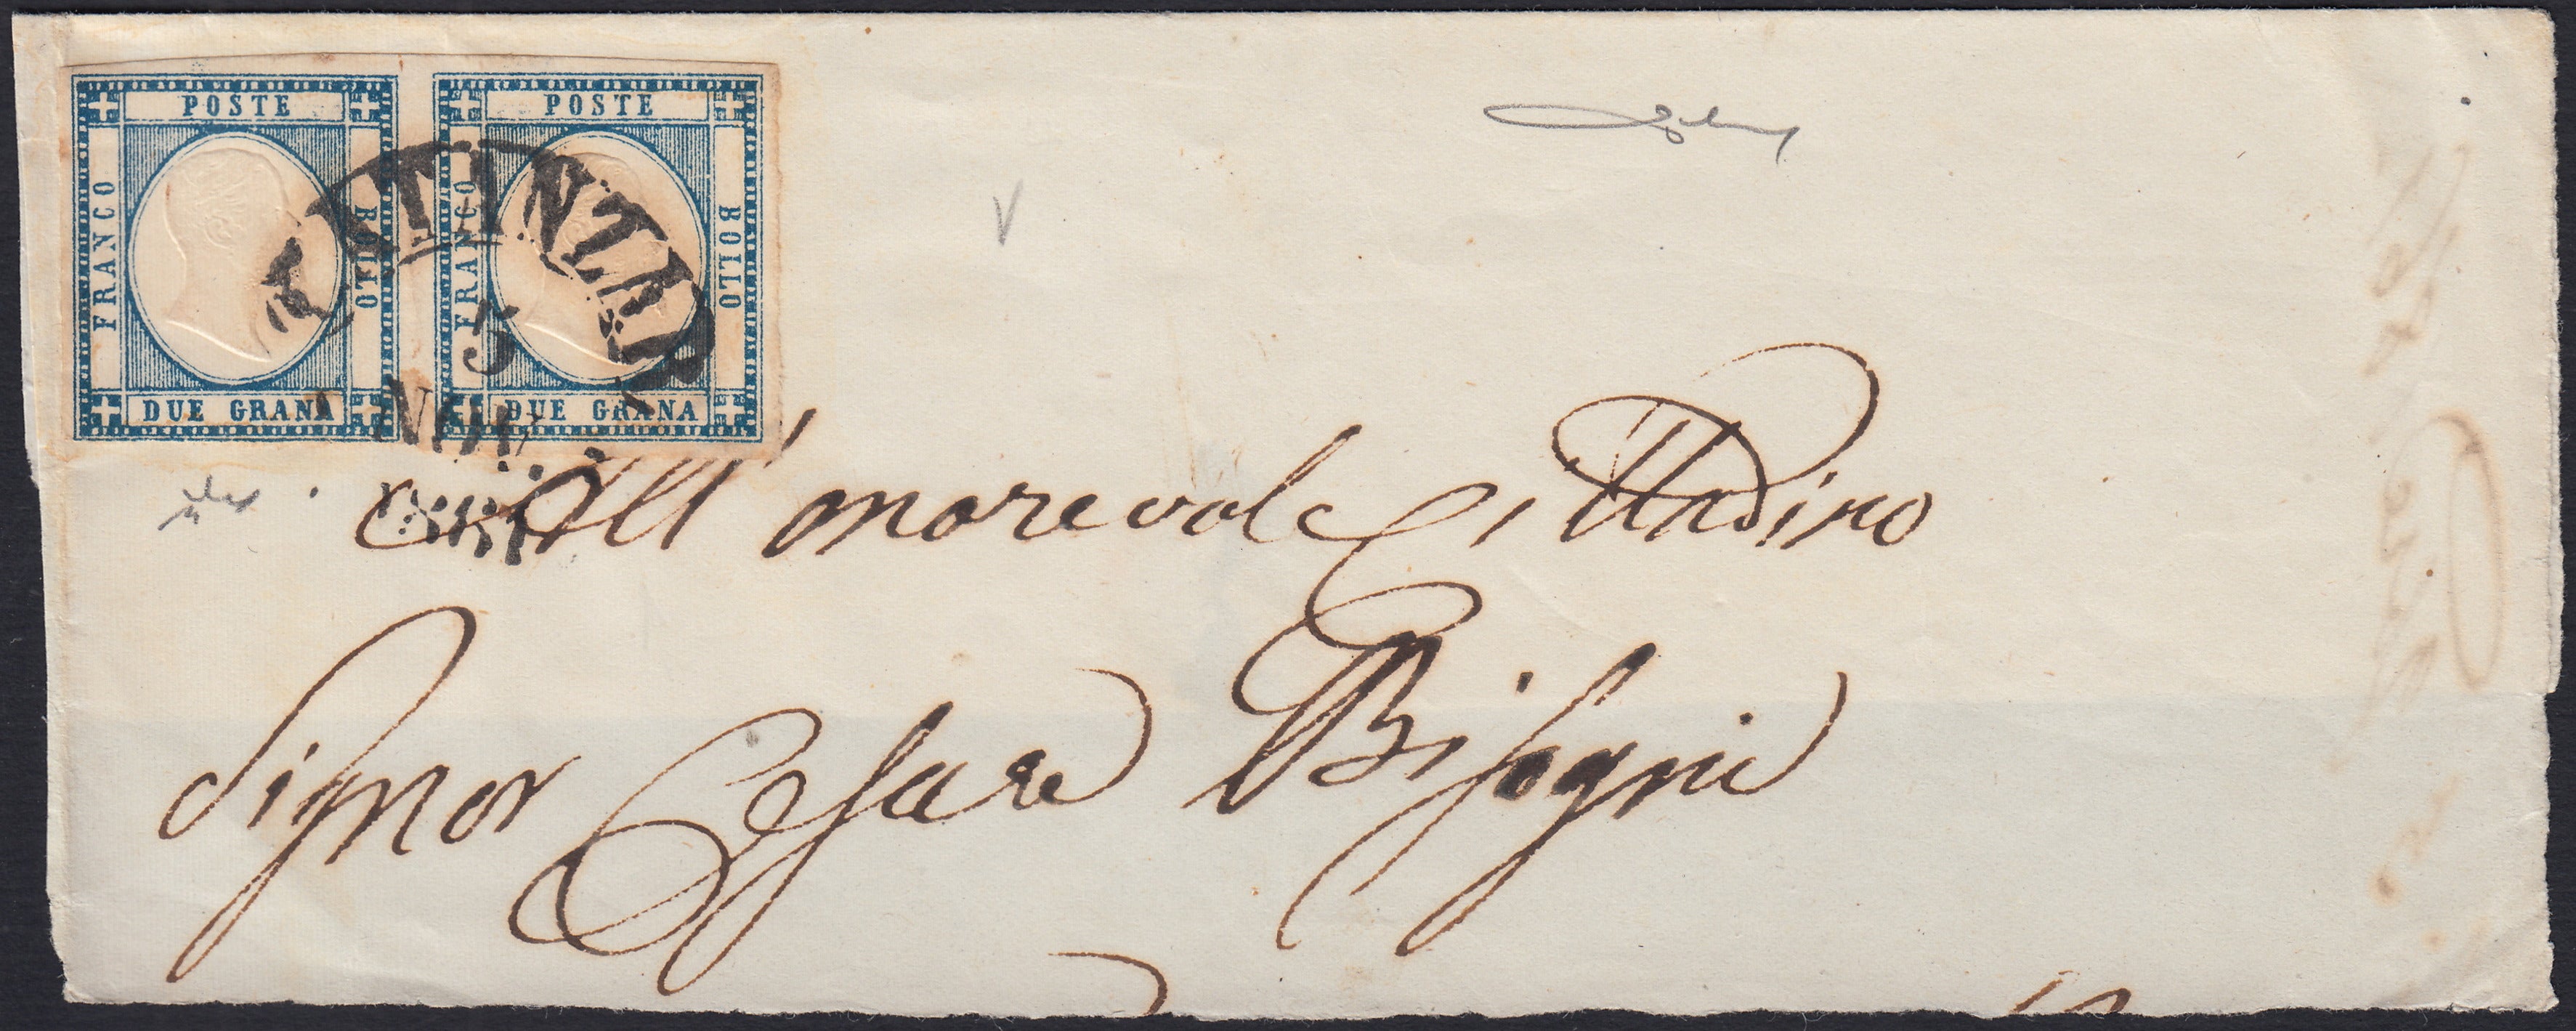 POSTE
FRANCO
BOLLO
DUE GRANA
POSTE
FRANCO
BOLLO
DUE GRANA
5
NOV
All' onorevole Cittadino
Signor Cesare Bisogni